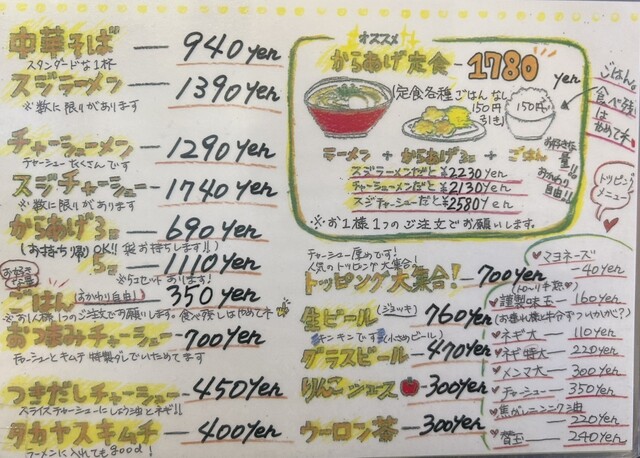 中華そば — 940yen
スタンダードな1杯
スジラーメン — 1390yen
※数に限りがあります
チャーシューメン — 1290yen
チャーシューたくさんです
スジチャーシュー — 1740yen
※数に限りがあります
からあげ3コ — 690yen
(お持ち帰りOK!! 袋お持ちします!!)
5コ — 1110yen
※5コセットあります!
お好きな量!!
ごはん(おかわり自由!) — 350yen
※お1人様1つのご注文でお願いします。食べ残しはやめてネ
おつまみチャーシュー — 700yen
チャーシューとキムチ特製ダレでいためてます
つきだしチャーシュー — 450yen
スライスチャーシューにしょう油とネギ!!
タカヤスキムチ — 400yen
ラーメンに入れてもgood!
オススメ
からあげ定食 — 1780yen
(定食各種ごはんなし
150円引き)
150円
ラーメン + からあげ3コ + ごはん
お好きな量!!
おかわり自由!!
スジラーメンだと¥2230yen
チャーシューメンだと¥2130yen
スジチャーシューだと¥2580yen
※お1様1つのご注文でお願いします。
ごはん。食べ残しはやめてネ
チャーシュー厚めです!
人気のトッピング大集合!
トッピング大集合! — 700yen
生ビール(ジョッキ) 760yen
キンキンです(小さめビール)
グラスビール — 470yen
りんごジュース — 300yen
ウーロン茶 — 300yen
トッピングメニュー
マヨネーズ — 40yen
(トローリ半熟♡)
謹製味玉 — 160yen
ネギ大 — 110yen
ネギ特大 — 220yen
メンマ大 — 300yen
チャーシュー — 350yen
焦がしニンニク油 — 220yen
替玉 — 240yen